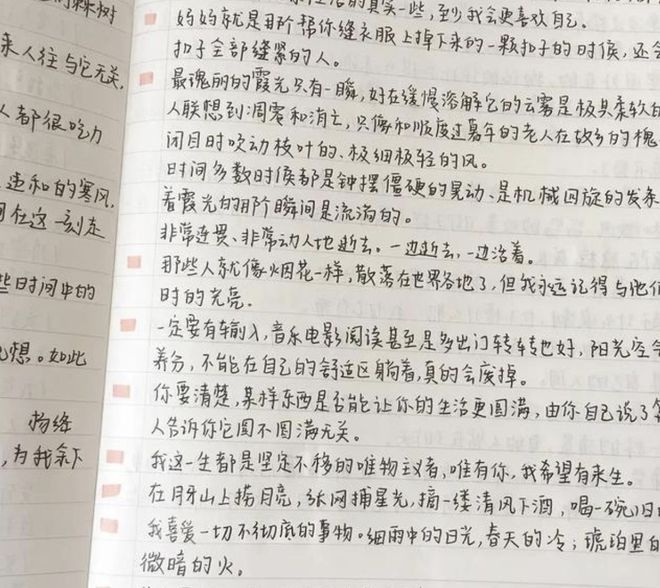 树
来人往与它无关,
人都很吃力
违和的寒风,
在这一刻走
些时间中的
想。如此
扬绛
,为我余下
真实一些,至少我会更喜欢自己.
妈妈就是那个帮你缝衣服上掉下来的一颗扣子的时候,还会
扣子全部缝紧的人。
最瑰丽的霞光只有一瞬,好在缓慢溶解它的云雾是极其柔软的
人联想到凋零和消亡,只像和顺度过暮年的老人在故乡的槐
闭目时吹动枝叶的、极细极轻的风。
时间多数时候都是钟摆僵硬的晃动、是机械回旋的发条
着霞光的那个瞬间是流淌的。
非常连贯、非常动人地逝去。一边逝去,一边活着。
那些人就像烟花一样,散落在世界各地了,但我永远记得与他们
时的光亮.
一定要有输入,音乐电影阅读甚至是多出门转转也好,阳光空气
养分,不能在自己的舒适区躺着,真的会废掉。
你要清楚,某样东西是否能让你的生活更圆满,由你自己说了算
人告诉你它圆不圆满无关。
我这一生都是坚定不移的唯物主义者,唯有你,我希望有来生。
在月牙山上捞月亮,张网捕星光,摘一缕清风下酒,喝一碗旧
我喜爱一切不彻底的事物。细雨中的日光,春天的冷;琥珀里的
微暗的火。